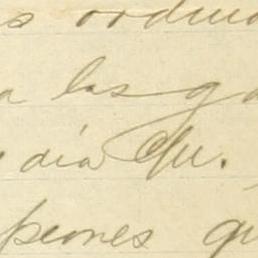 s ordina
a las ga
dia
peones qu